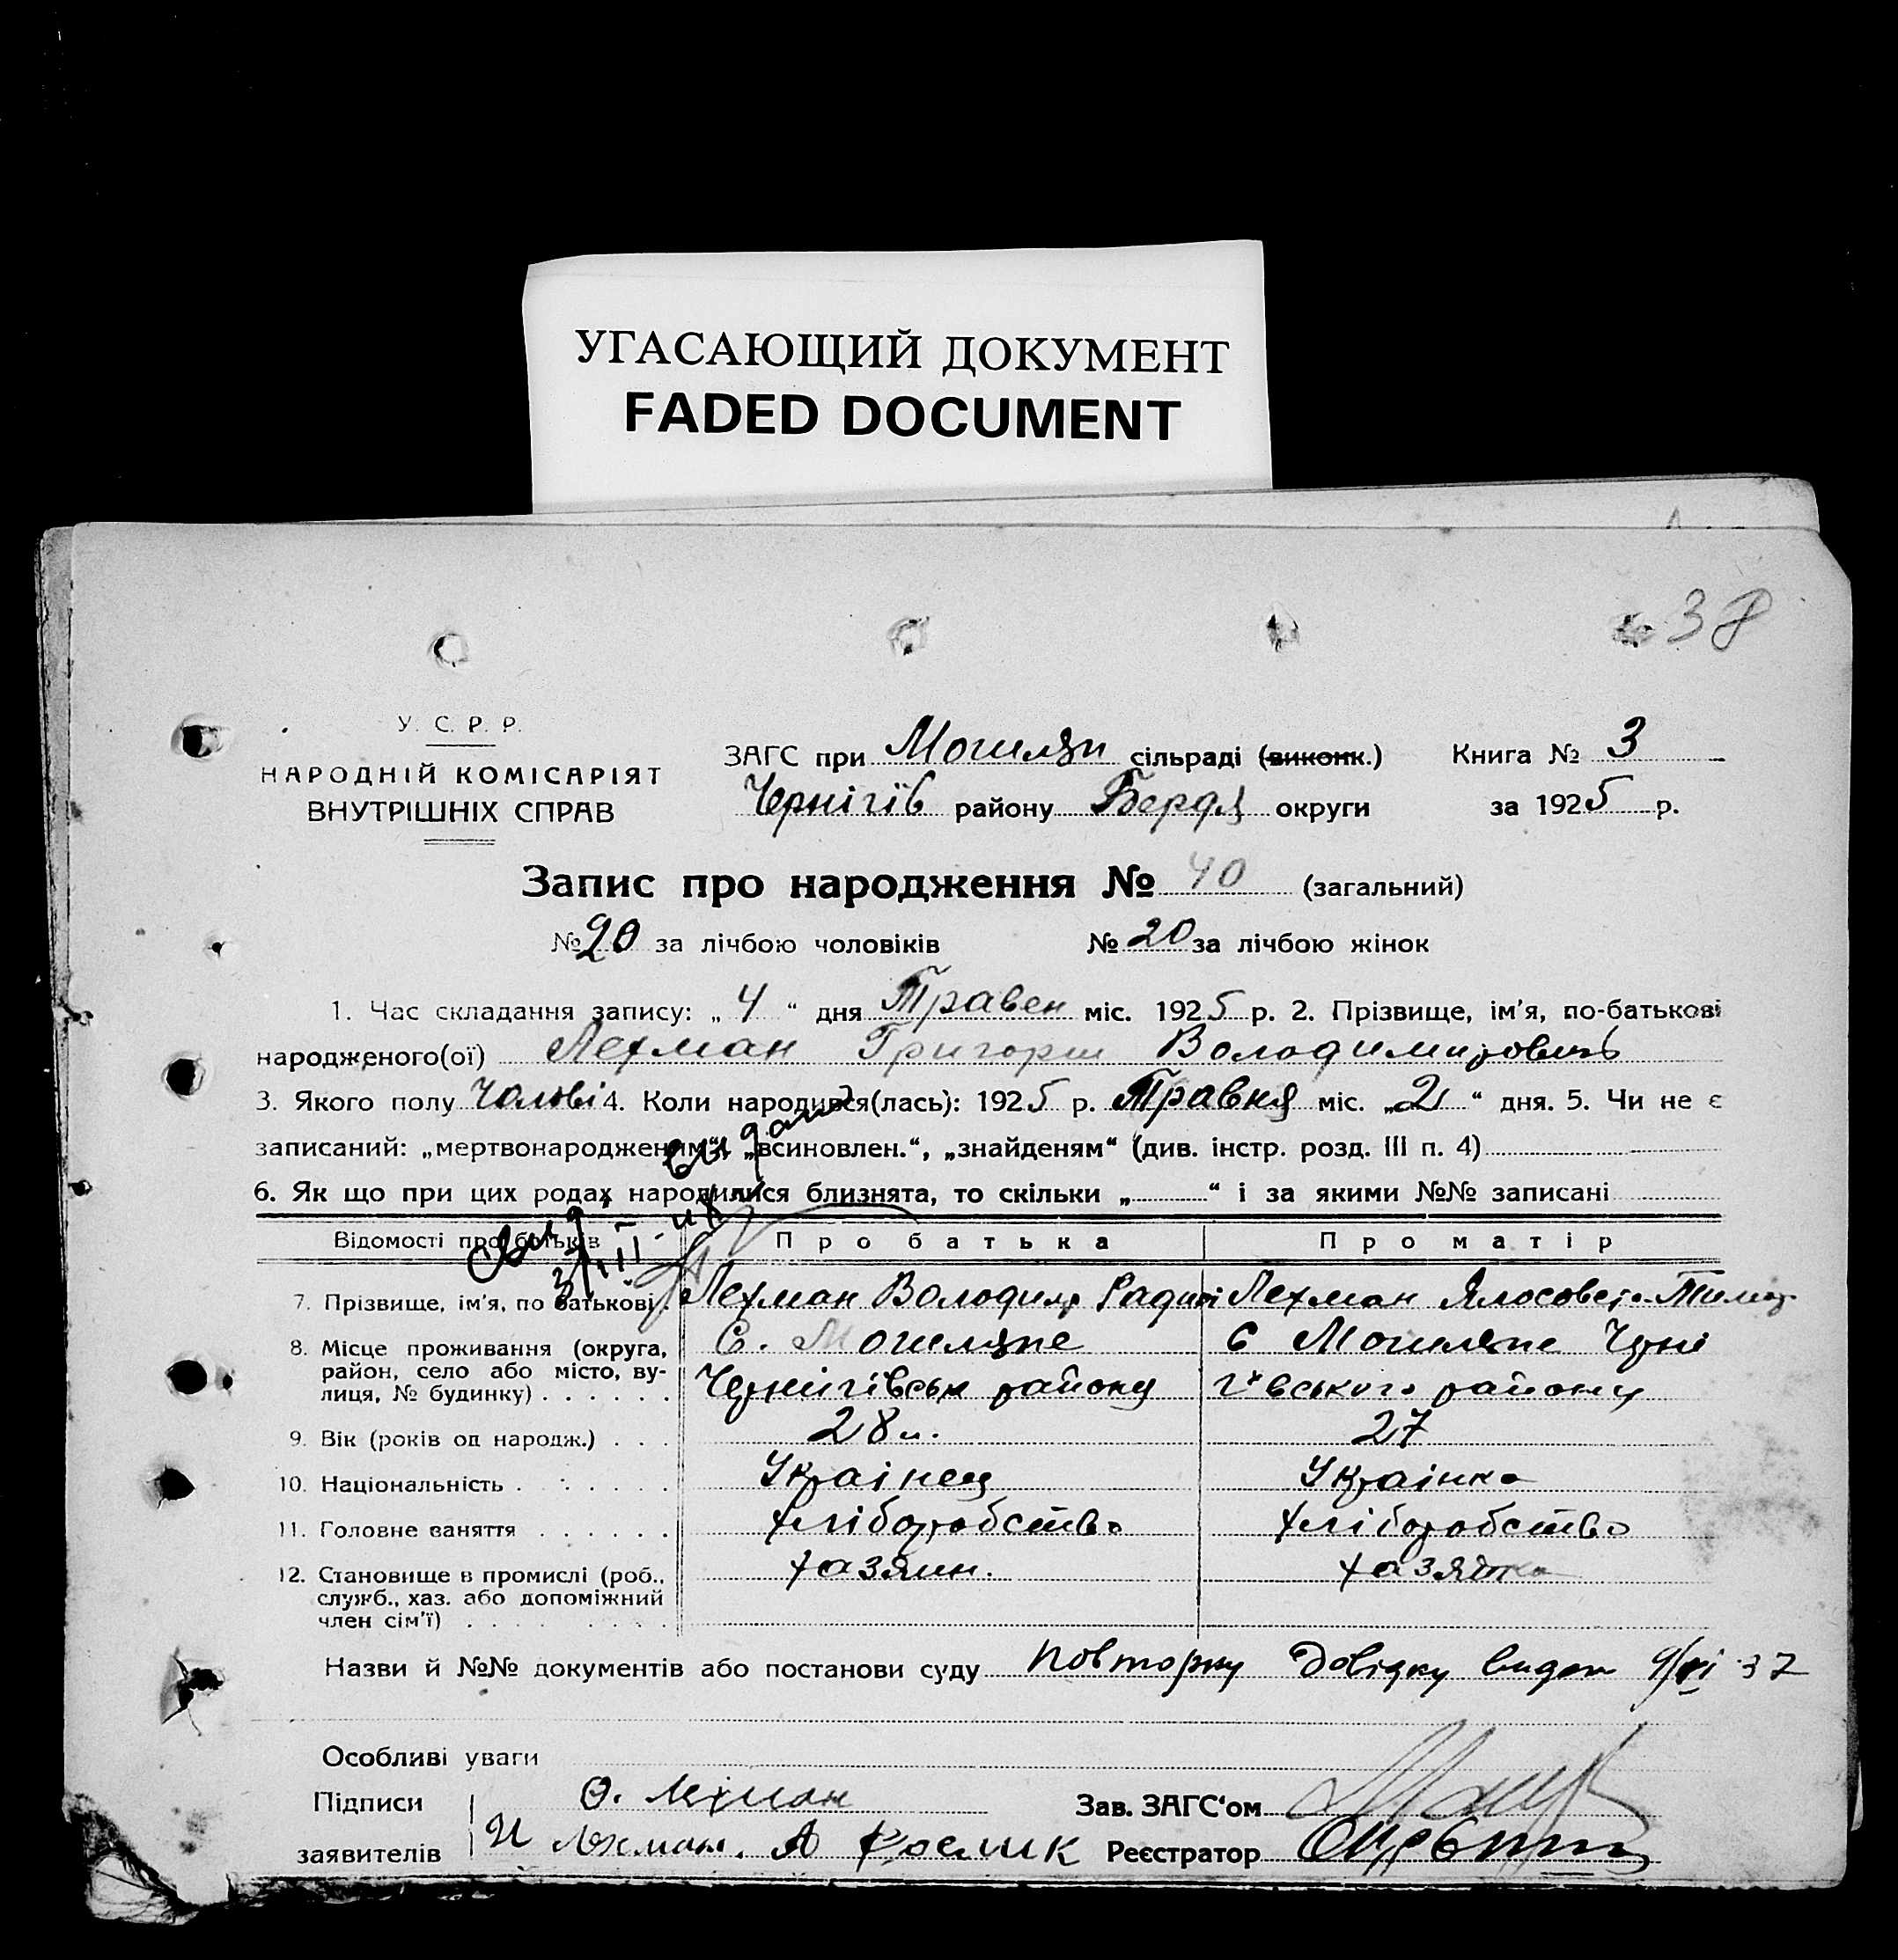 УГАСАЮЩИЙ ДОКУМЕНТ
FADED DOCUMENT
38
У. С. Р. Р.
НАРОДНІЙ КОМІСАРІЯТ
ВНУТРІШНІХ СПРАВ
ЗАГС при Могилян сільраді (виконк.) Книга № 3
Чернігів району Бердя округи за 1925 р.
Запис про народження № 40 (загальний)
№ 20 за лічбою чоловіків № 20 за лічбою жінок
1. Час складання запису: „ 4 “ дня Травен міс. 1925 р. 2. Прізвище, ім'я, по-батькові
народженого(ої) Лехман Григорій Володимирович
3. Якого полу Чолові 4. Коли народився(лась): 1925 р. Травня міс. „2“ дня. 5. Чи не є
записаний: „мертвонародженим“, „всиновлен.“, „знайденям“ (див. інстр. розд. III п. 4)
6. Як що при цих родах народилися близнята, то скільки „ “ і за якими №№ записані
Відомості про батьків Про батька Про матір
7. Прізвище, ім'я, по батькові. Лехман Володимр Лехман
8. Місце проживання (округа, район, село або місто, ву-лиця, № будинку) . . . . . .
С. Могиляне С Могиляне Черні
Чернигівськ району гівського району
9. Вік (років од народж.) . . . 28 27
10. Національність . . . . . . Украінец Украінка
11. Головне заняття . . . . . . хліборобство хліборобство
12. Становище в промислі (роб., служб., хаз. або допоміжний член сім'ї) . . . . . . хазяин. хазяйка
Назви й №№ документів або постанови суду Повторну довідку видан 37
Особливі уваги
Підписи О. Лехман Зав. ЗАГС‘ом
заявителів И Лехман. А Реєстратор